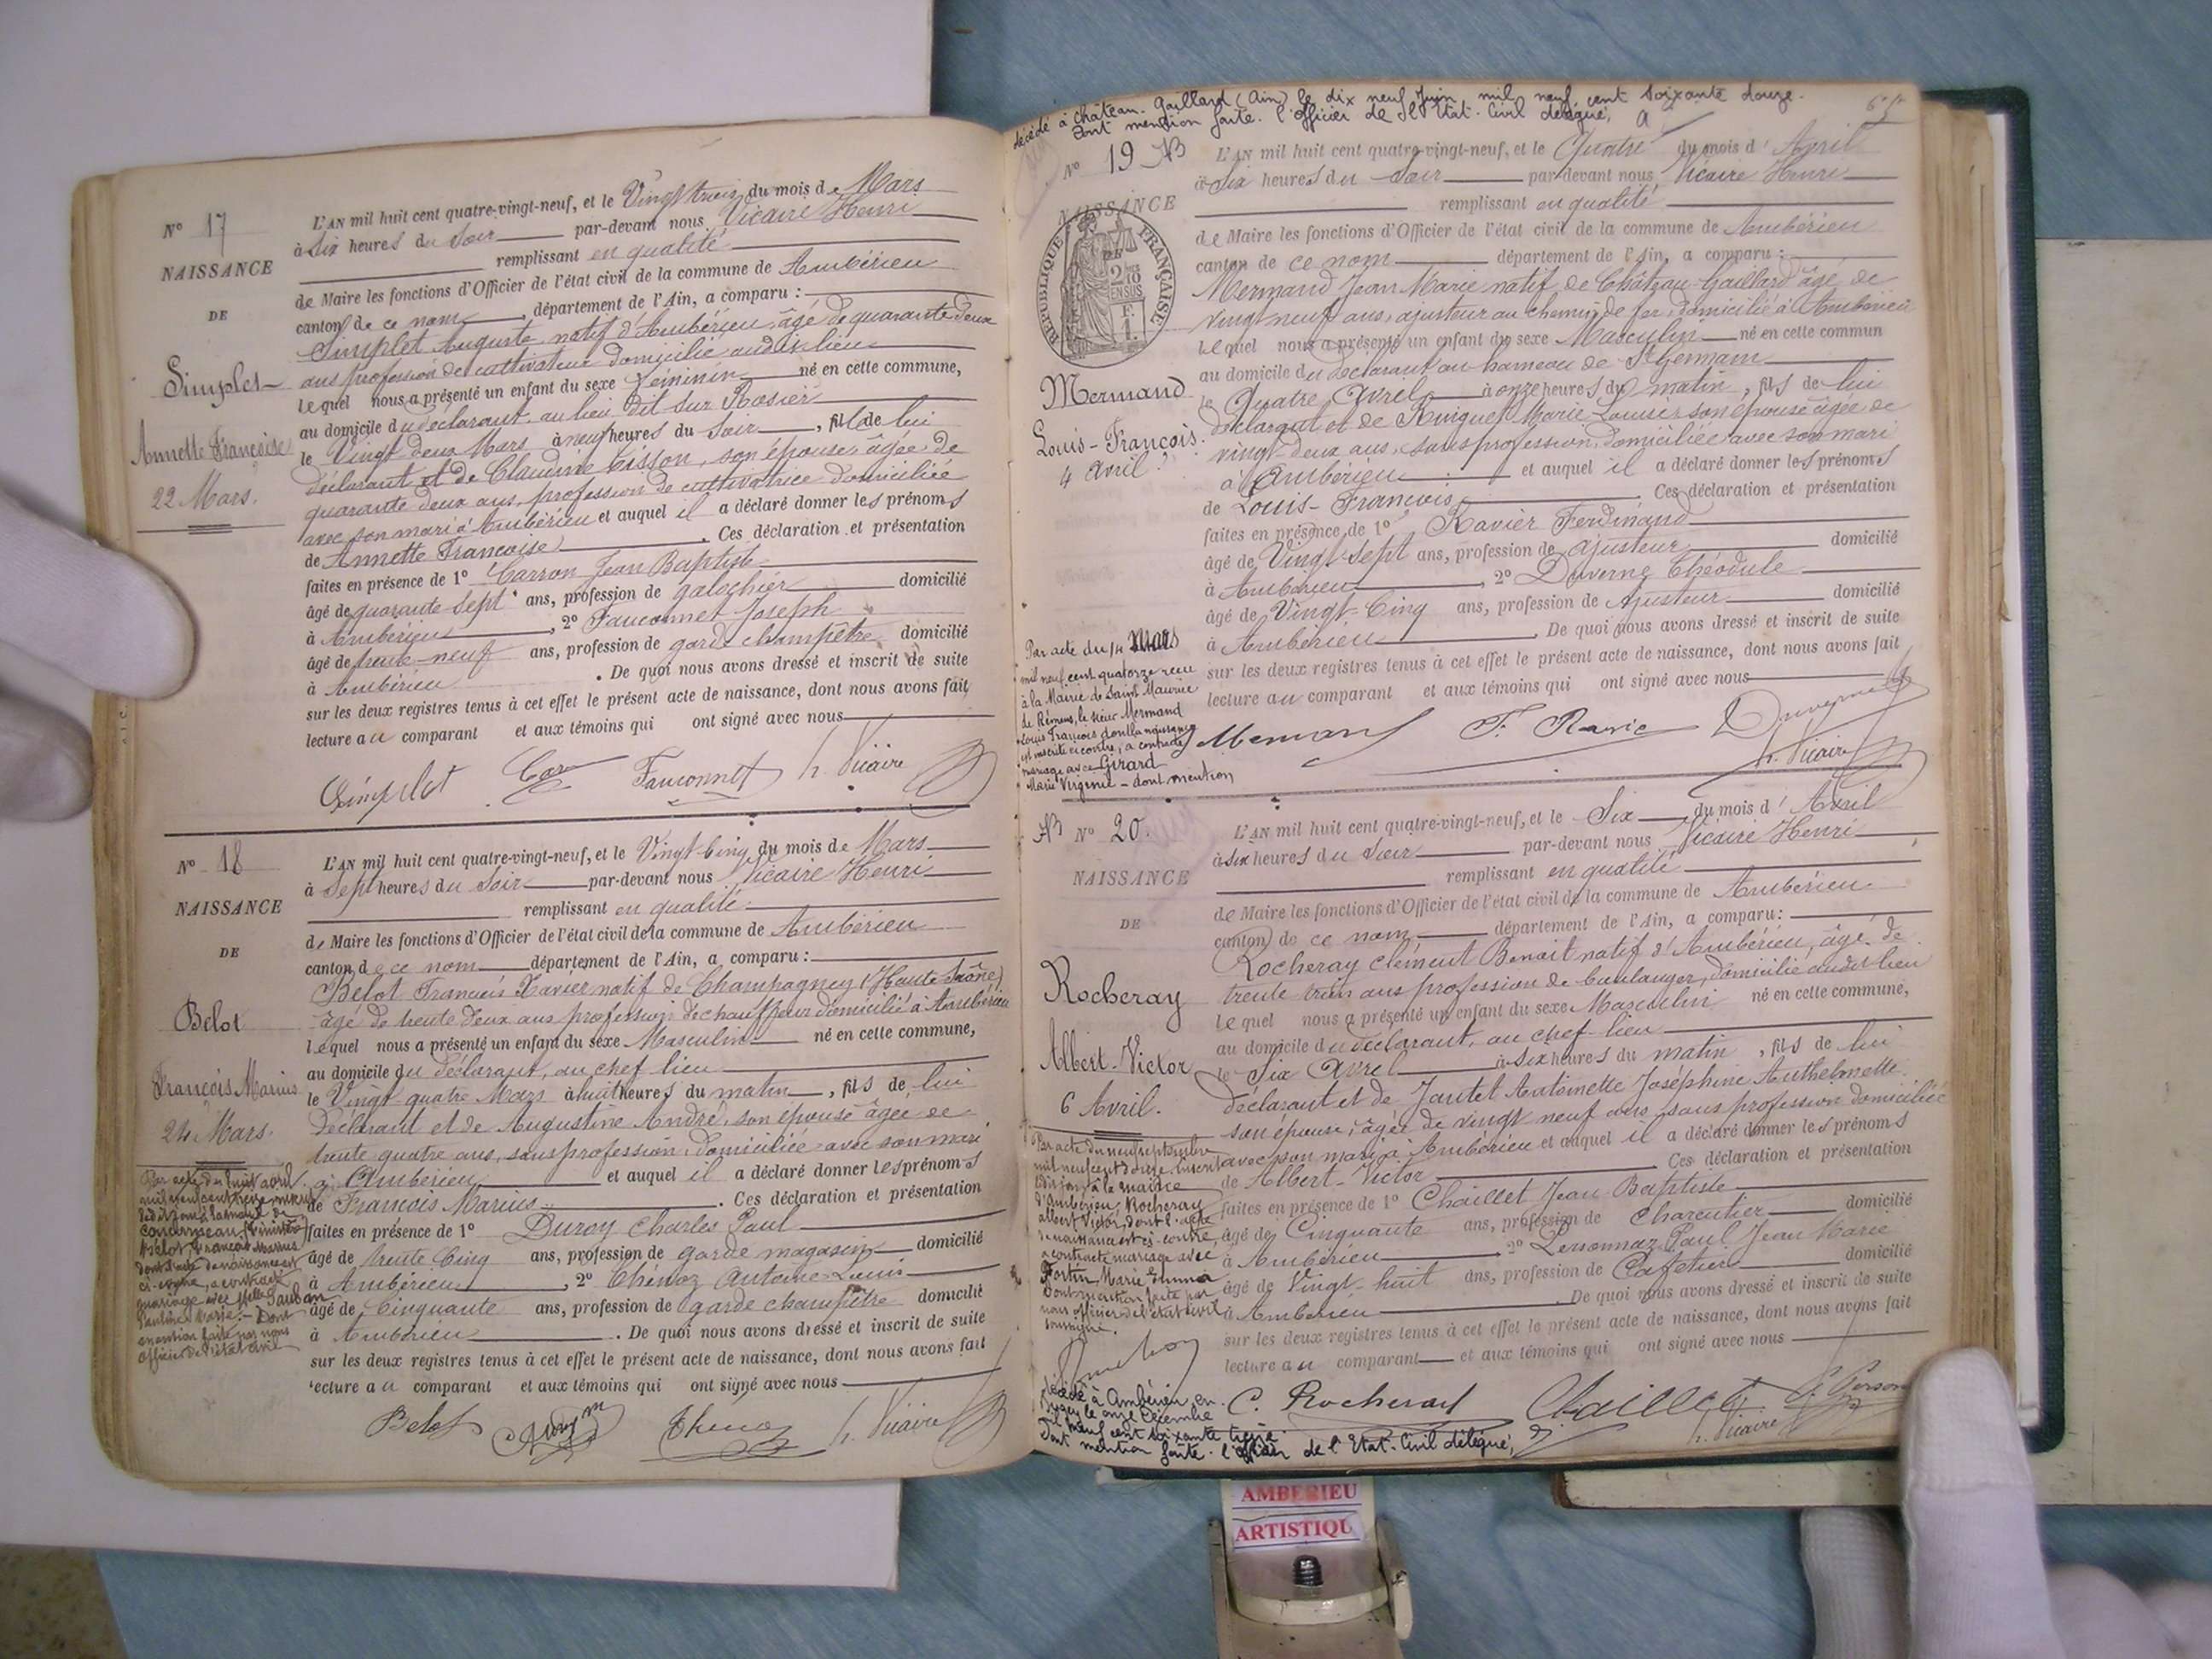 N° 17
NAISSANCE
DE
Simplet
Annette Françoise
22 Mars.
L'AN mil huit cent quatre-vingt-neuf, et le Vingt trois du mois de Mars
à Six heures du Soir par-devant nous Vicaire Henri
remplissant en qualité
de Maire les fonctions d'Officier de l'état civil de la commune de Ambérieu
canton de ce nom, département de l'Ain, a comparu :
Simplet Auguste natif d'Ambérieu, âgé de quarante deux
ans profession de cultivateur domicilié audit lieu
Lequel nous a présenté un enfant du sexe Féminin né en cette commune,
au domicile du déclarant, au lieu dit Sur Rosier
le Vingt deux Mars à neuf heures du Soir, fille de lui
déclarant et de Claudine Cisson, son épouse, âgée de
quarante deux ans, profession de cultivatrice domiciliée
avec son mari à Ambérieu et auquel il a déclaré donner les prénoms
de Annette Françoise. Ces déclaration et présentation
faites en présence de 1° Carron Jean Baptiste
âgé de quarante sept ans, profession de galochier domicilié
à Ambérieu, 2° Fauconnet Joseph
âgé de trente-neuf ans, profession de garde champêtre domicilié
à Ambérieu. De quoi nous avons dressé et inscrit de suite
sur les deux registres tenus à cet effet le présent acte de naissance, dont nous avons fait
lecture au comparant et aux témoins qui ont signé avec nous
Simplet Fauconnet h. Vicaire
N° 18
NAISSANCE
DE
Belot
François Marius
24 Mars.
L'AN mil huit cent quatre-vingt-neuf, et le Vingt-Cinq du mois de Mars
à Sept heures du Soir par-devant nous Vicaire Henri
remplissant en qualité
de Maire les fonctions d'Officier de l'état civil de la commune de Ambérieu
canton de ce nom département de l'Ain, a comparu :
Belot François Xavier natif de Champagney (Haute Saône)
âgé de trente deux ans profession de chauffeur domicilié à Ambérieu
lequel nous a présenté un enfant du sexe Masculin né en cette commune,
au domicile du déclarant, au chef lieu
le Vingt quatre Mars à huit heures du matin, fils de lui
déclarant et de Augustine André, son épouse âgée de
trente quatre ans, sans profession, domiciliée avec son mari
à Ambérieu et auquel il a déclaré donner les prénoms
de François Marius. Ces déclaration et présentation
faites en présence de 1° Duroy Charles Paul
âgé de trente Cinq ans, profession de garde magasin domicilié
à Ambérieu, 2° Chénoz Antoine Louis
âgé de Cinquante ans, profession de garde champêtre domicilié
à Ambérieu. De quoi nous avons dressé et inscrit de suite
sur les deux registres tenus à cet effet le présent acte de naissance, dont nous avons fait
lecture au comparant et aux témoins qui ont signé avec nous
Par acte du huit avril
mil neuf cent treize
Concarneau (Finistère)
Belot François Marius
dont acte de naissance est
ci-contre, a contracté
mariage avec Melle
Pauline Marie. - Dont
mention faite par nous
officier de l'état civil
Belot h. Vicaire
décédé à Château-Gaillard (Ain) le dix neuf Juin mil neuf cent soixante douze.
Dont mention faite. l'officier de l'Etat-Civil délégué,
N° 19
NAISSANCE
DE
REPUBLIQUE FRANÇAISE
2/10 EN SUS
Mermand
Louis-François.
4 avril
L'AN mil huit cent quatre-vingt-neuf, et le Quatre du mois d'Avril
à Six heures du Soir par-devant nous Vicaire Henri
remplissant en qualité
de Maire les fonctions d'Officier de l'état civil de la commune de Ambérieu
canton de ce nom département de l'Ain, a comparu :
Mermand Jean Marie natif de Château-Gaillard âgé de
vingt neuf ans, ajusteur au chemin de fer, domicilié à Ambérieu
Lequel nous a présenté un enfant du sexe Masculin né en cette commun
au domicile du déclarant au hameau de St Germain
le Quatre Avril à onze heures du matin, fils de lui
déclarant et de Marie Louise son épouse âgée de
vingt-deux ans, sans profession, domiciliée avec son mari
à Ambérieu et auquel il a déclaré donner les prénoms
de Louis-François. Ces déclaration et présentation
faites en présence de 1° Ravier Ferdinand
âgé de Vingt-Sept ans, profession de ajusteur domicilié
à Ambérieu, 2° Duverne Théodule
âgé de Vingt-Cinq ans, profession de Ajusteur domicilié
à Ambérieu. De quoi nous avons dressé et inscrit de suite
sur les deux registres tenus à cet effet le présent acte de naissance, dont nous avons fait
lecture au comparant et aux témoins qui ont signé avec nous
Par acte du 14 Mars
mil neuf cent quatorze reçu
à la Mairie de Saint Maurice
de Rémens, le sieur Mermand
Louis François dont la naissance
est inscrite ci contre, a contracté
mariage avec Girard
Marie Virginie - dont mention
Mermand F. Ravier Duverne
h. Vicaire
N° 20.
NAISSANCE
DE
Rocheray
Albert-Victor
6 Avril.
L'AN mil huit cent quatre-vingt-neuf, et le Six du mois d'Avril
à Six heures du Soir par-devant nous Vicaire Henri
remplissant en qualité
de Maire les fonctions d'Officier de l'état civil de la commune de Ambérieu
canton de ce nom département de l'Ain, a comparu :
Rocheray Clément Benoit natif d'Ambérieu, âgé de
trente trois ans profession de boulanger, domicilié audit lieu
Lequel nous a présenté un enfant du sexe Masculin né en cette commune,
au domicile du déclarant, au chef-lieu
le Six Avril à Six heures du matin, fils de lui
déclarant et de Jantet Antoinette Joséphine Anthelmette
son épouse, âgée de vingt neuf ans, sans profession domiciliée
avec son mari à Ambérieu et auquel il a déclaré donner les prénoms
de Albert-Victor. Ces déclaration et présentation
faites en présence de 1° Chaillet Jean-Baptiste
âgé de Cinquante ans, profession de Charcutier domicilié
à Ambérieu, 2° Personnaz Paul Jean Marie
âgé de Vingt-huit ans, profession de Cafetier domicilié
à Ambérieu. De quoi nous avons dressé et inscrit de suite
sur les deux registres tenus à cet effet le présent acte de naissance, dont nous avons fait
lecture au comparant et aux témoins qui ont signé avec nous
Par acte du neuf septembre
à la mairie
d'Ambérieu, Rocheray
Albert Victor, dont l'acte
de naissance est ci-contre,
a contracté mariage avec
Fortin Marie Emma
Dont mention faite par
nous officier de l'état civil
soussigné.
décédé à Ambérieu en
Bugey le onze Décembre
mil neuf cent soixante treize
Dont mention faite. l'officier de l'Etat-Civil délégué,
C. Rocheray Chaillet
h. Vicaire
AMBERIEU
ARTISTIQU